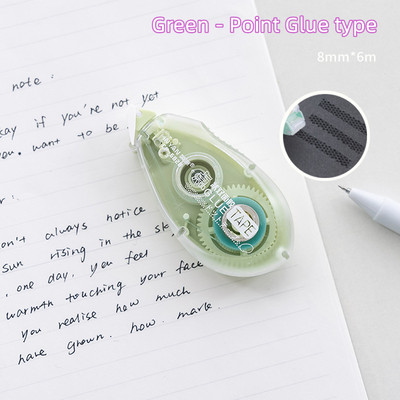 Green - Point Glue type
8mm*6m
note:
say if you're not yet
you. want to be
don't always notice
sun rising in the sky
, one day, you feel
warmth touching your face
you realise how much
have grown. how. mark.
GLUE
TAPE